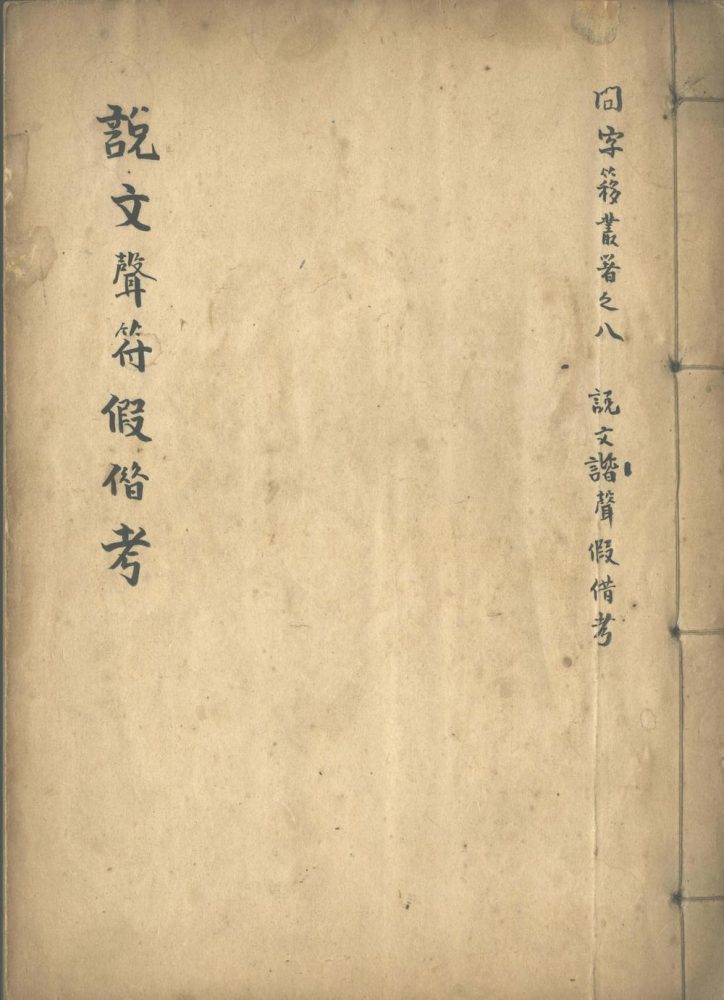 問字簃叢著之八　說文諧聲假借考
說文聲符假借考